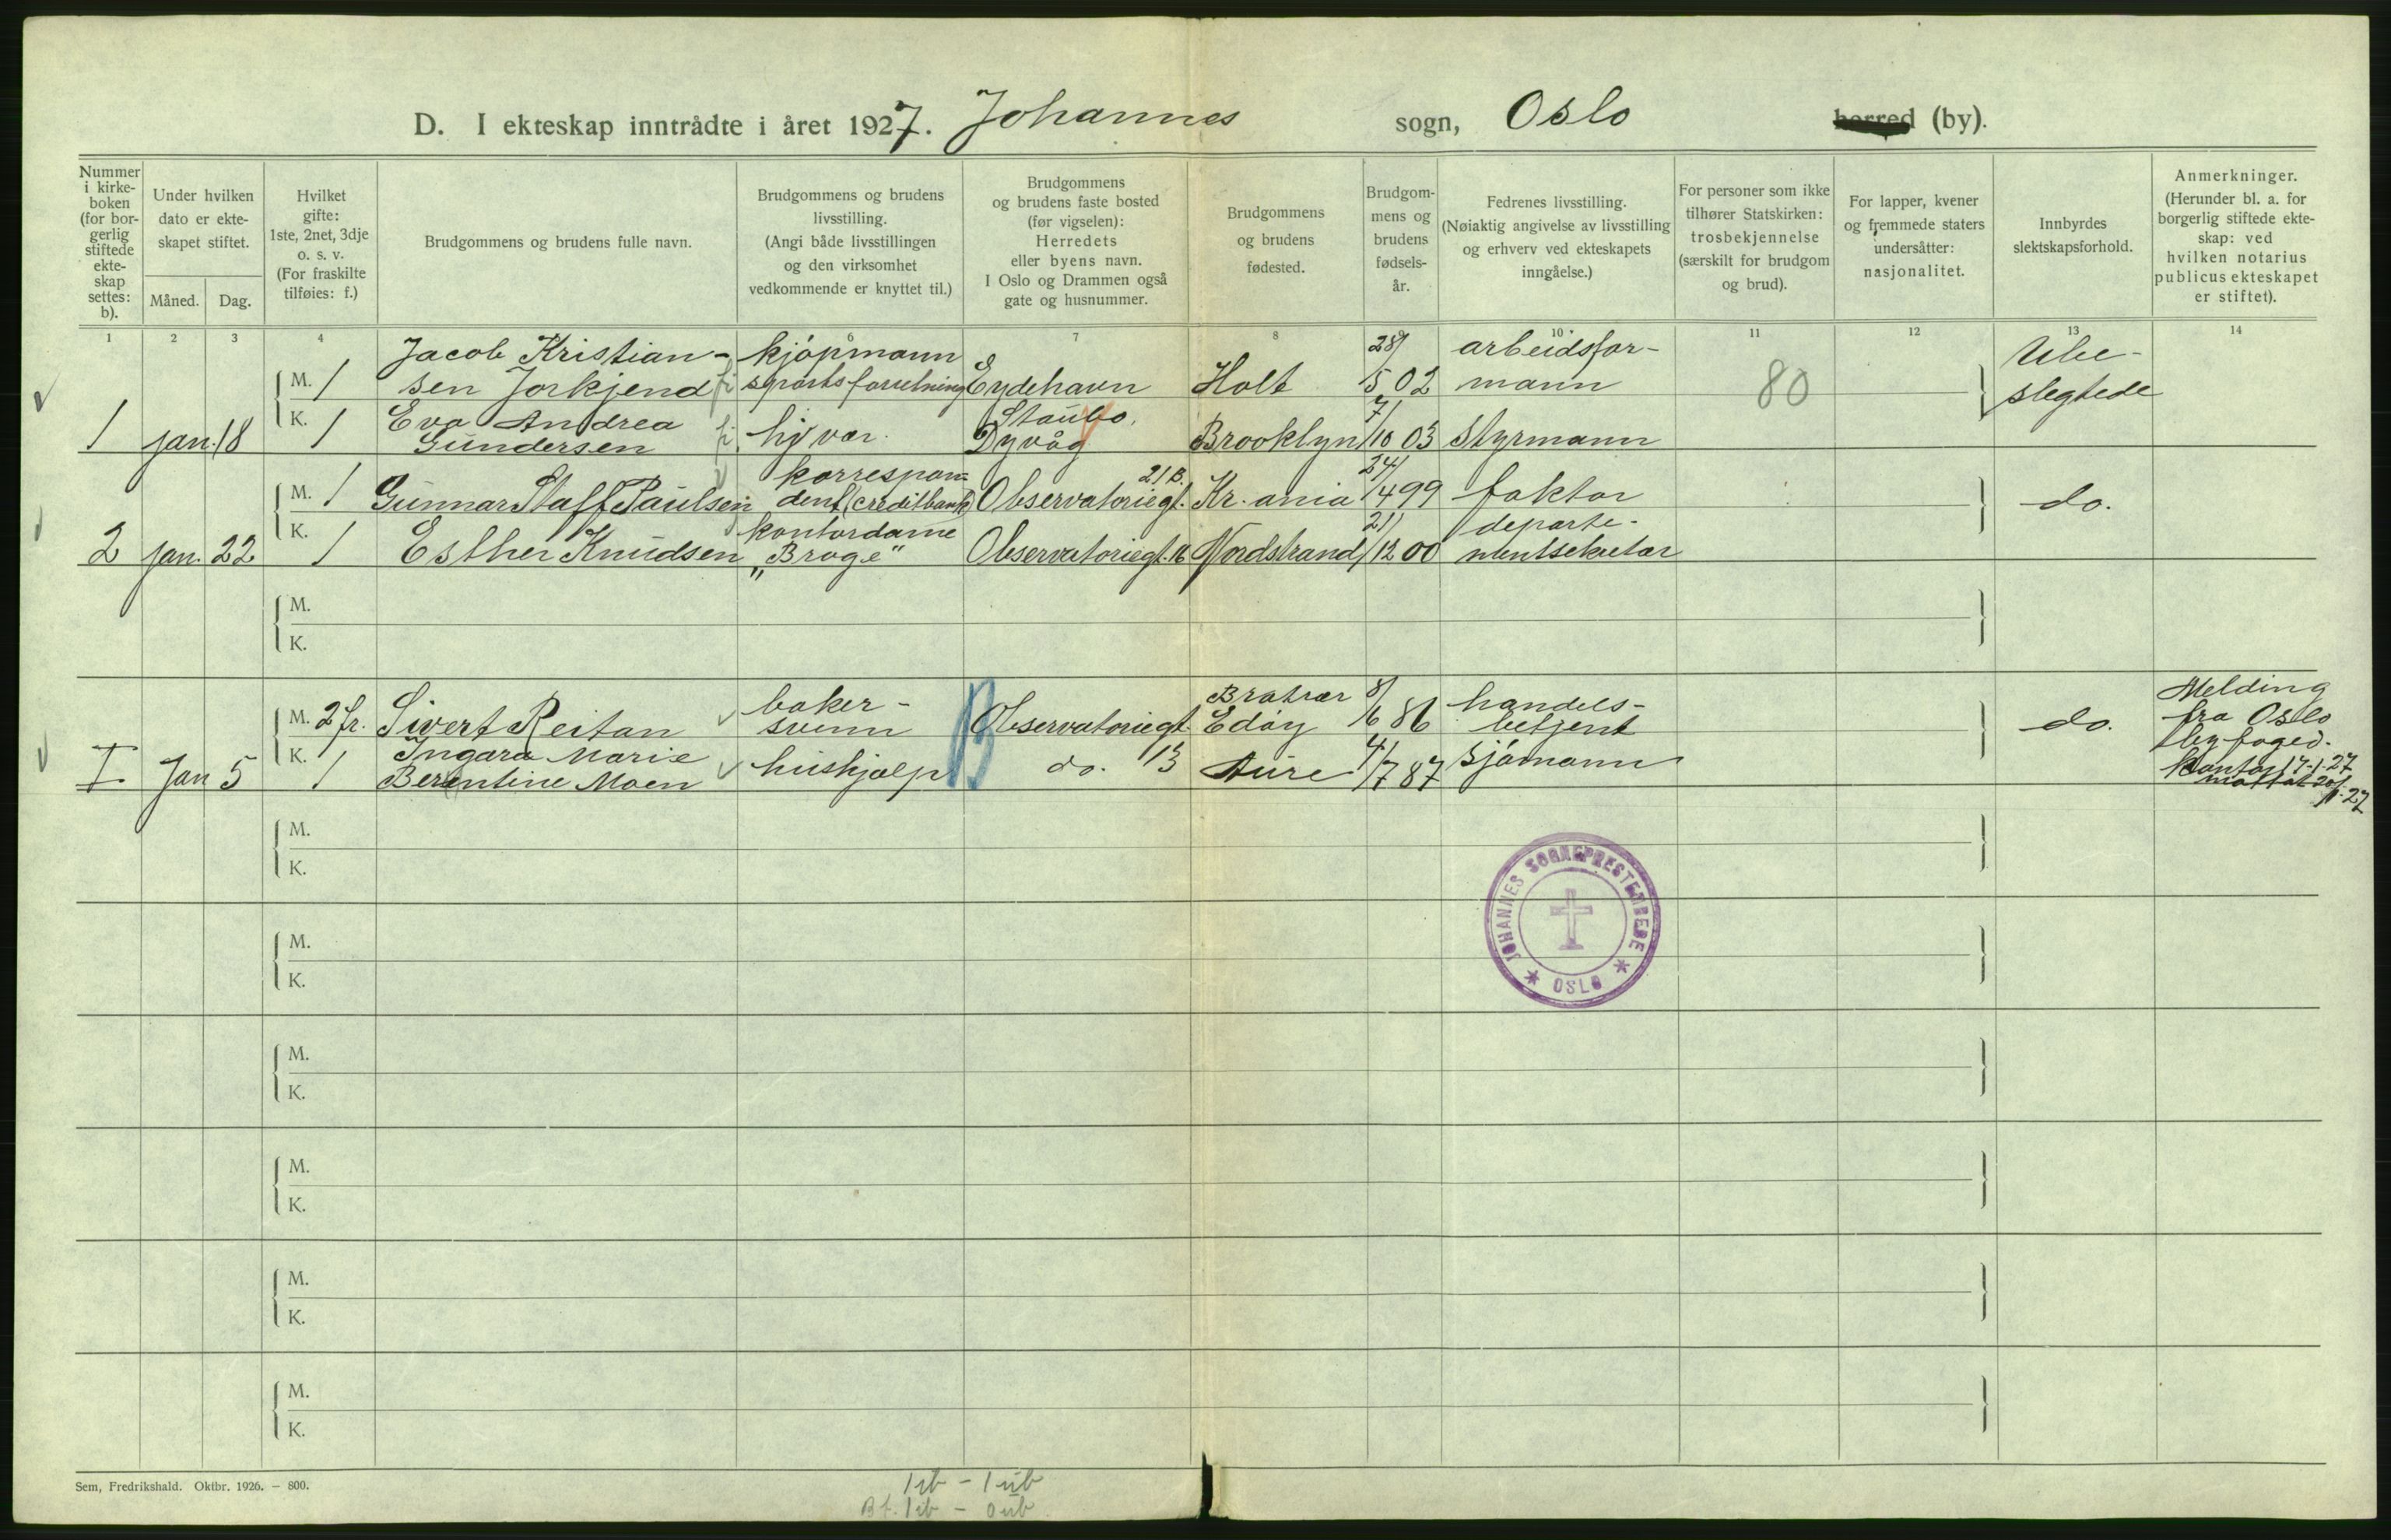 D. I ekteskap inntrådte i året 1927. Johannes sogn, Oslo herred (by).
Nummer
i kirke-
boken
(for bor-
gerlig
stiftede
ekte-
skap
settes:
b).
Under hvilken
dato er ekte-
skapet stiftet.
Måned. Dag.
Hvilket
gifte:
1ste, 2net, 3dje
o. s. v.
(For fraskilte
tilføies: f.)
Brudgommens og brudens fulle navn.
Brudgommens og brudens
livsstilling.
(Angi både livsstillingen
og den virksomhet
vedkommende er knyttet til.)
Brudgommens
og brudens faste bosted
(før vigselen):
Herredets
eller byens navn.
I Oslo og Drammen også
gate og husnummer.
Brudgommens
og brudens
fødested.
Brudgom-
mens og
brudens
fødsels-
år.
Fedrenes livsstilling.
(Nøiaktig angivelse av livsstilling
og erhverv ved ekteskapets
inngåelse.)
For personer som ikke
tilhører Statskirken:
trosbekjennelse
(særskilt for brudgom
og brud).
For lapper, kvener
og fremmede staters
undersåtter:
nasjonalitet.
Innbyrdes
slektskapsforhold.
Anmerkninger.
(Herunder bl. a. for
borgerlig stiftede ekte-
skap: ved
hvilken notarius
publicus ekteskapet
er stiftet).
1 2 3 4 6 7 8 9 10 11 12 13 14
Jacob Kristian- kjøpmann 28/ arbeidsfor- Ube-
M. 1 sen Torkjend sportsforretning Eydehavn Holt 5 02 mann 80 slegtede
K. Eva Andrea Staubo, 7/
1 jan. 18 1 Gundersen hj vær. Dyvåg Brooklyn 10 03 styrmann
korrespon= 21 B. 24/
M. 1 Gunnar Staff Paulsen dent (creditbank) Observatoriegt. Kr.ania 4 99 faktor do.
K. kontordame 21/ departe-
2 jan. 22 1 Esther Knudsen "Brage" Observatoriegt. 16 Nordstrand 12 00 mentsekretær
M.
K.
baker- Bratvær 8/ handels- Melding
M. 2 fr. Sivert Reitan svenn Observatoriegt. Edøy 6 86 betjent do. fra Oslo
K. Ingara Marie 4/ byfoged.
I Jan 5 1 Berentine Moen hushjælp do. 13 Aure 7 87 sjømann kontor 17-1-27
mottat 20/1-27
M.
K.
JOHANNES SOGNEPRESTEMBEDE
OSLO
M.
K.
M.
K.
M.
K.
M.
K.
M.
K.
Sem, Fredrikshald. Oktbr. 1926. — 800.
1 ib - 1 ub
Bf. 1 ib - 0 ub